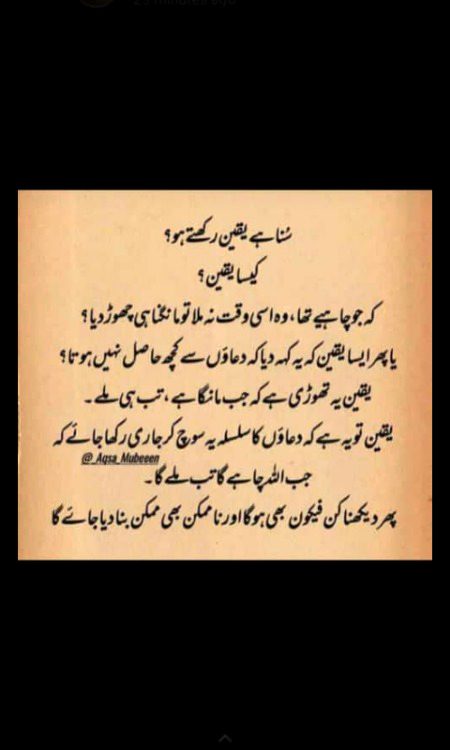 سُنا ہے یقین رکھتے ہو؟
کیسا یقین؟
کہ جو چاہیے تھا، وہ اسی وقت نہ ملا تو مانگنا ہی چھوڑ دیا؟
یا پھر ایسا یقین کہ یہ کہہ دیا کہ دعاؤں سے کچھ حاصل نہیں ہوتا؟
یقین یہ تھوڑی ہے کہ جب مانگا ہے، تب ہی ملے۔
یقین تو یہ ہے کہ دعاؤں کا سلسلہ یہ سوچ کر جاری رکھا جائے کہ
@_Aqsa_Mubeeen
جب اللہ چاہے گا تب ملے گا۔
پھر دیکھنا کن فیکون بھی ہوگا اور ناممکن بھی ممکن بنا دیا جائے گا